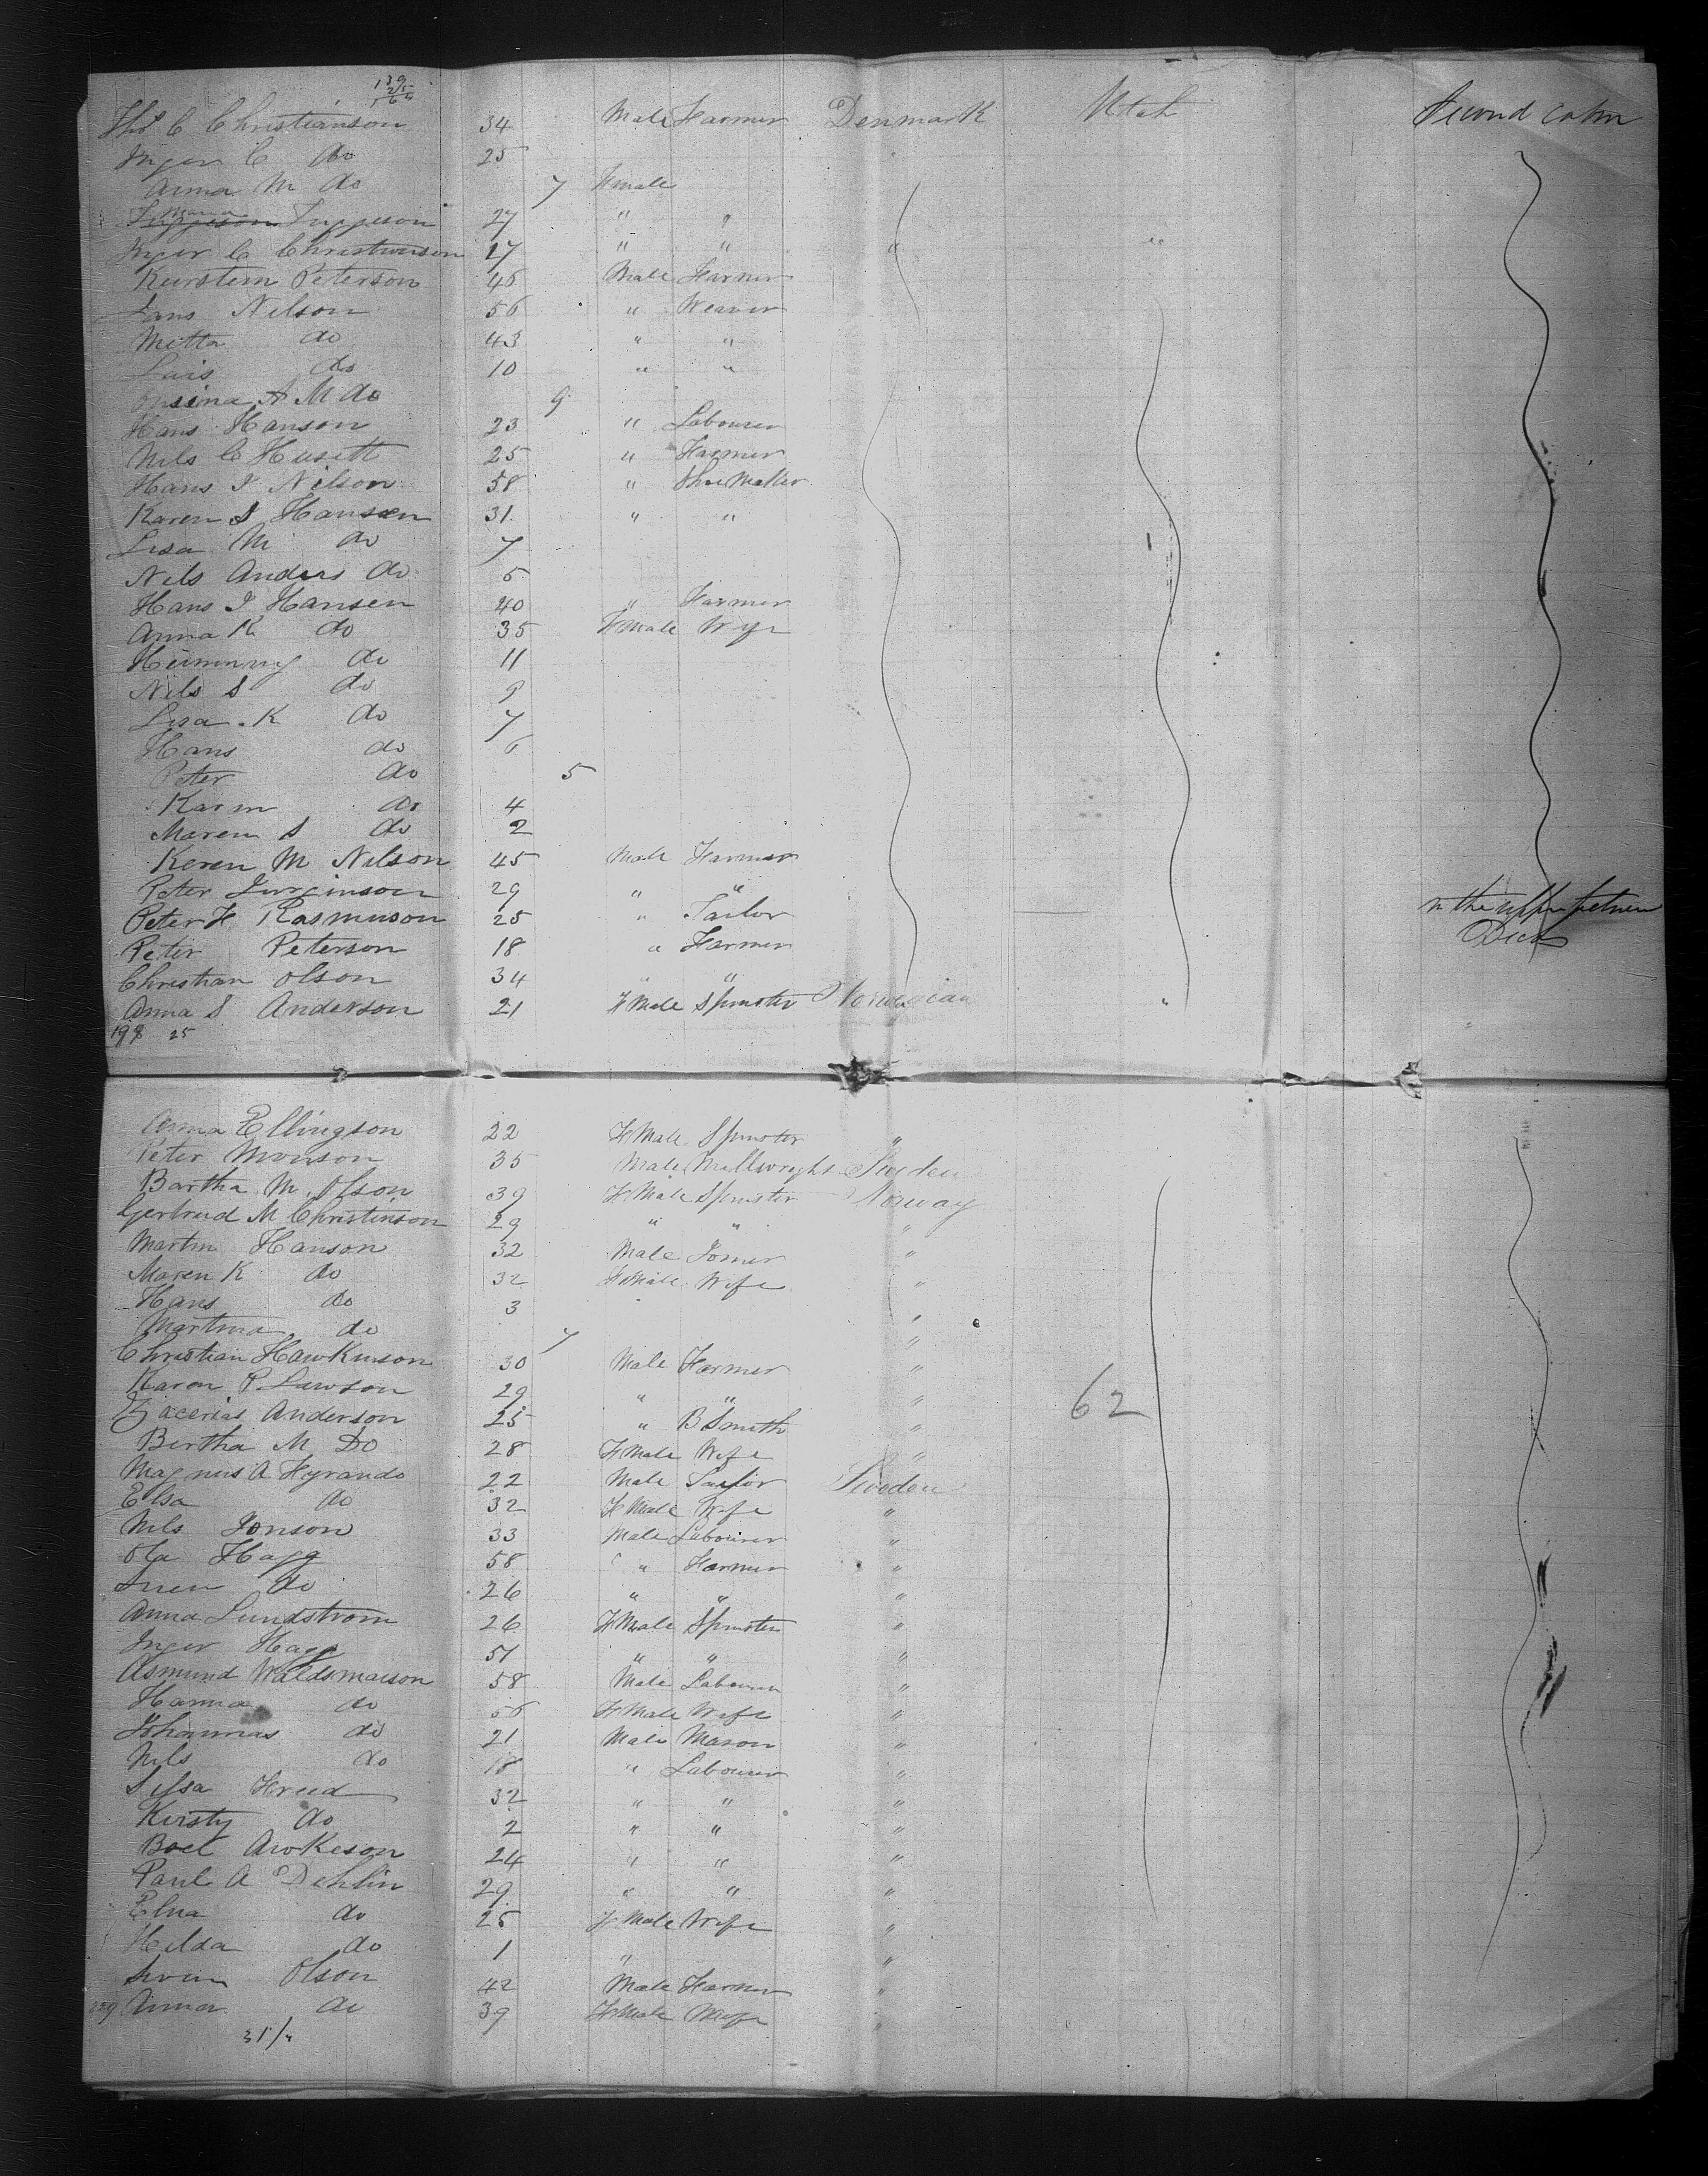 139
25
164
Ths C Christianson 34 Male Farmer Denmark Utah Second cabin
Inger C do 25
Anna M do 7 Fmale
Maria Juppeson 27 " "
Inger C Christianson 27 " " " "
Kierstein Peterson 46 Male Farmer
Lans Nilson 56 " Weaver
Metta do 43 " "
Lais do 10 " "
A M do 9
Hans Hanson 23 " Labourer
Nils C Husett 25 " Farmer
Hans I Nilson 58 " Shoe Maker
Karen S Hansen 31 " "
Lisa M do 7
Nils Anders do 5
Hans I Hansen 40 " Farmer
Anna K do 35 FMale Wife
Heimmng do 11
Nils S do 9
Lisa K do 7
Hans do 6
Peter do 5
Karin do 4
Maren S do 2
Keren M Nilson 45 Male Farmer
Peter Jurginson 29 " "
Peter H Rasmuson 25 " Tailor in the upper between
Peter Peterson 18 " Farmer Decks
Christian Olson 34 " "
Anna S Anderson 21 FMale Spinster Norwegian "
198 25
Anna Ellingson 22 FMale Spinster "
Peter Monson 35 Male Millwright Sweden
Bartha M Olson 39 FMale Spinster Norway
Gertrud M Christinson 29 " " "
Martin Hanson 32 Male Joiner "
Maren K do 32 FMale Wife "
Hans do 3 "
Martina do 7 "
Christian Hawkinson 30 Male Farmer "
Karen P Lawson 29 " " "
Zacerias Anderson 25 " B Smith " 62
Bertha M Do 28 FMale Wife "
Magnus A Fyrando 22 Male Tailor Sweden
Elsa do 32 FMale Wife "
Nils Jonson 33 Male Labourer "
Ola Hagg 58 " Farmer "
Suen do 26 " " "
Anna Lundstrom 26 FMale Spinster "
Inger Hagg 51 " " "
Asmund Waldsmarson 58 Male Labourer "
Hanna do 56 FMale Wife "
Johannas do 21 Male Mason "
Nils do 18 " Labourer "
Sissa Freed 32 " " "
Kirsty do 2 " " "
Boel Awkeson 24 " " "
Paul A Dehlin 29 " " "
Elna do 25 FMale Wife "
Hilda do 1 " "
Sven Olson 42 Male Farmer "
229 Anna do 39 FMale Wife "
31/4